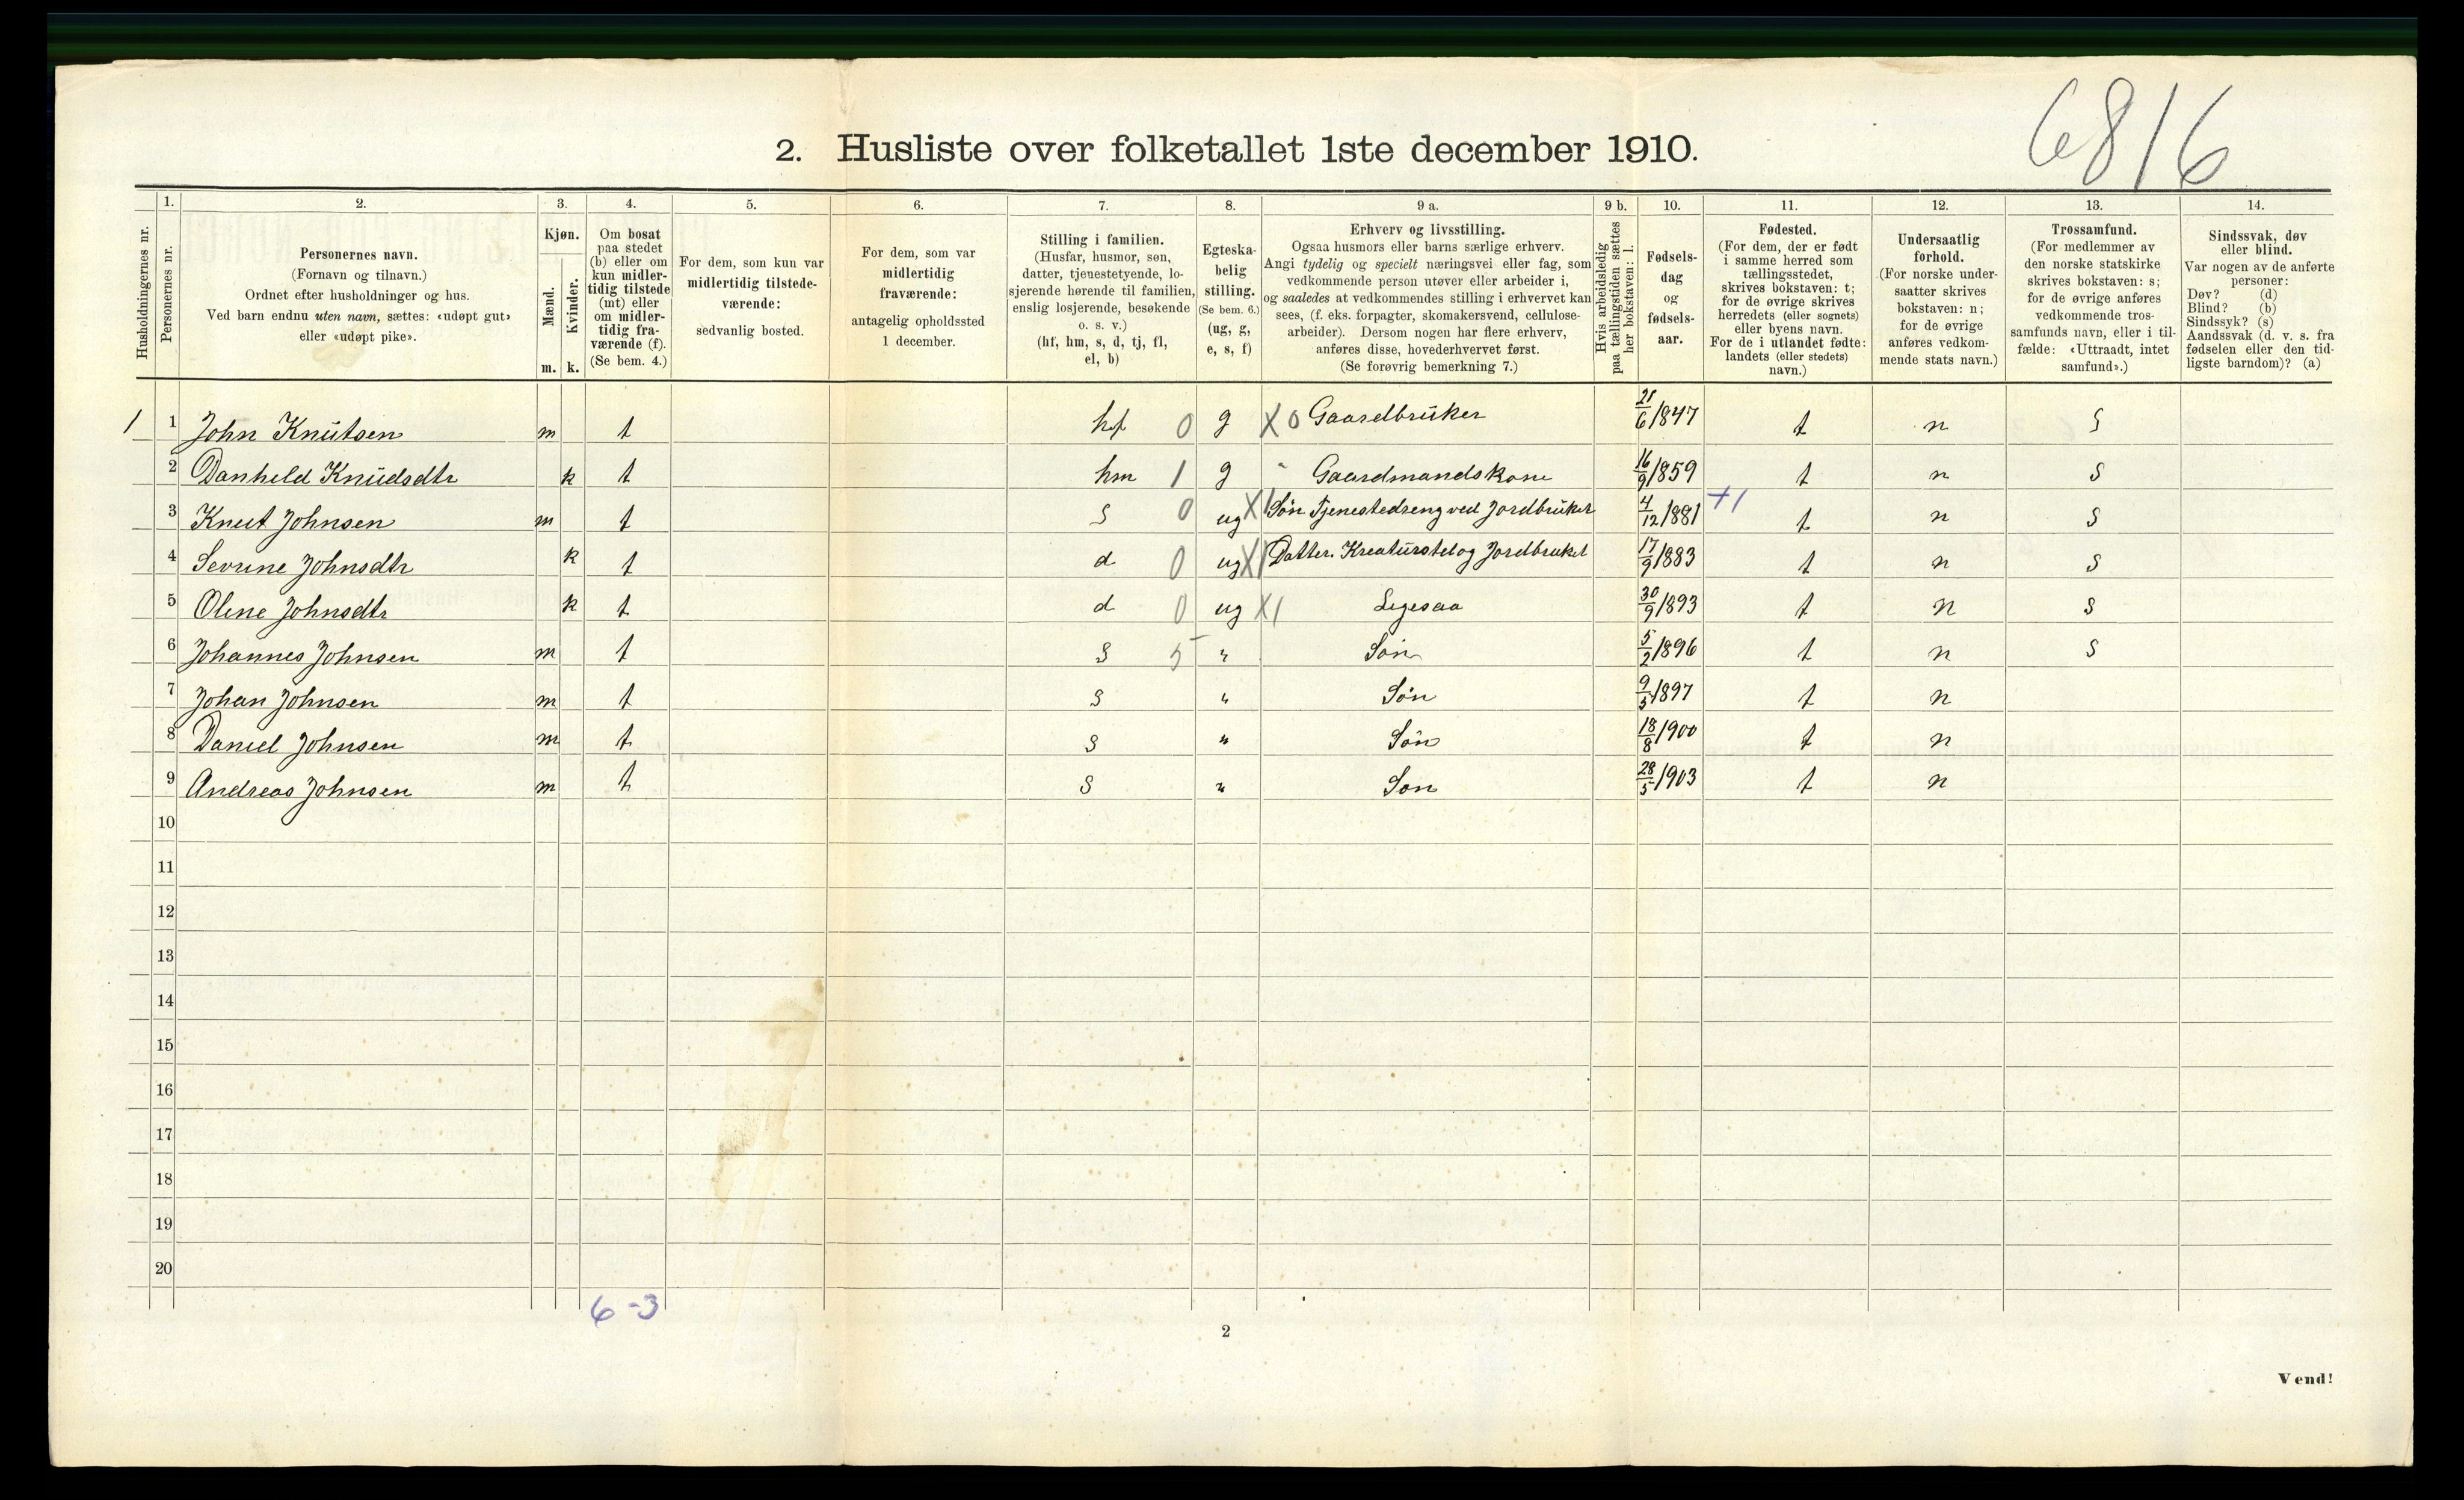 6816
2. Husliste over folketallet 1ste december 1910.
Husholdningernes nr.
1. Personernes nr.
2. Personernes navn.
(Fornavn og tilnavn.)
Ordnet efter husholdninger og hus.
Ved barn endnu uten navn, sættes: «udøpt gut»
eller «udøpt pike».
3. Kjøn.
Mænd. m.
Kvinder. k.
4. Om bosat
paa stedet
(b) eller om
kun midler-
tidig tilstede
(mt) eller
om midler-
tidig fra-
værende (f).
(Se bem. 4.)
5. For dem, som kun var
midlertidig tilstede-
værende:
sedvanlig bosted.
6. For dem, som var
midlertidig
fraværende:
antagelig opholdssted
1 december.
7. Stilling i familien.
(Husfar, husmor, søn,
datter, tjenestetyende, lo-
sjerende hørende til familien,
enslig losjerende, besøkende
o. s. v.)
(hf, hm, s, d, tj, fl,
el, b)
8. Egteska-
belig
stilling.
(Se bem. 6.)
(ug, g,
e, s, f)
9 a. Erhverv og livsstilling.
Ogsaa husmors eller barns særlige erhverv.
Angi tydelig og specielt næringsvei eller fag, som
vedkommende person utøver eller arbeider i,
og saaledes at vedkommendes stilling i erhvervet kan
sees, (f. eks. forpagter, skomakersvend, cellulose-
arbeider). Dersom nogen har flere erhverv,
anføres disse, hovederhvervet først.
(Se forøvrig bemerkning 7.)
9 b. Hvis arbeidsledig
paa tællingstiden sættes
her bokstaven: l.
10. Fødsels-
dag
og
fødsels-
aar.
11. Fødested.
(For dem, der er født
i samme herred som
tællingsstedet,
skrives bokstaven: t;
for de øvrige skrives
herredets (eller sognets)
eller byens navn.
For de i utlandet fødte:
landets (eller stedets)
navn.)
12. Undersaatlig
forhold.
(For norske under-
saatter skrives
bokstaven: n;
for de øvrige
anføres vedkom-
mende stats navn.)
13. Trossamfund.
(For medlemmer av
den norske statskirke
skrives bokstaven: s;
for de øvrige anføres
vedkommende tros-
samfunds navn, eller i til-
fælde: «Uttraadt, intet
samfund».)
14. Sindssvak, døv
eller blind.
Var nogen av de anførte
personer:
Døv? (d)
Blind? (b)
Sindssyk? (s)
Aandssvak (d. v. s. fra
fødselen eller den tid-
ligste barndom)? (a)
1 1 John Knütsen m t hf 0 g X 0 Gaardbrüker 21/6 1847 t n S
2 Danheld Knüdsdtr k t hm 1 g " Gaardmandskone 16/9 1859 t n S
3 Knut Johnsen m t S 0 ug X1 Søn Tjenestedreng ved Jordbrüket 4/12 1881 +1 t n S
4 Sevrine Johnsdtr k t d 0 ug X1 Datter. Kreaturstel og Jordbruket 17/9 1883 t n S
5 Oline Johnsdtr k t d 0 ug X1 Ligesaa 30/9 1893 t n S
6 Johannes Johnsen m t S 5 " Søn 5/2 1896 t n S
7 Johan Johnsen m t S " Søn 9/5 1897 t n
8 Daniel Johnsen m t S " Søn 18/8 1900 t n
9 Andreas Johnsen m t S " Søn 28/5 1903 t n
10
11
12
13
14
15
16
17
18
19
20
6-3
2
Vend!